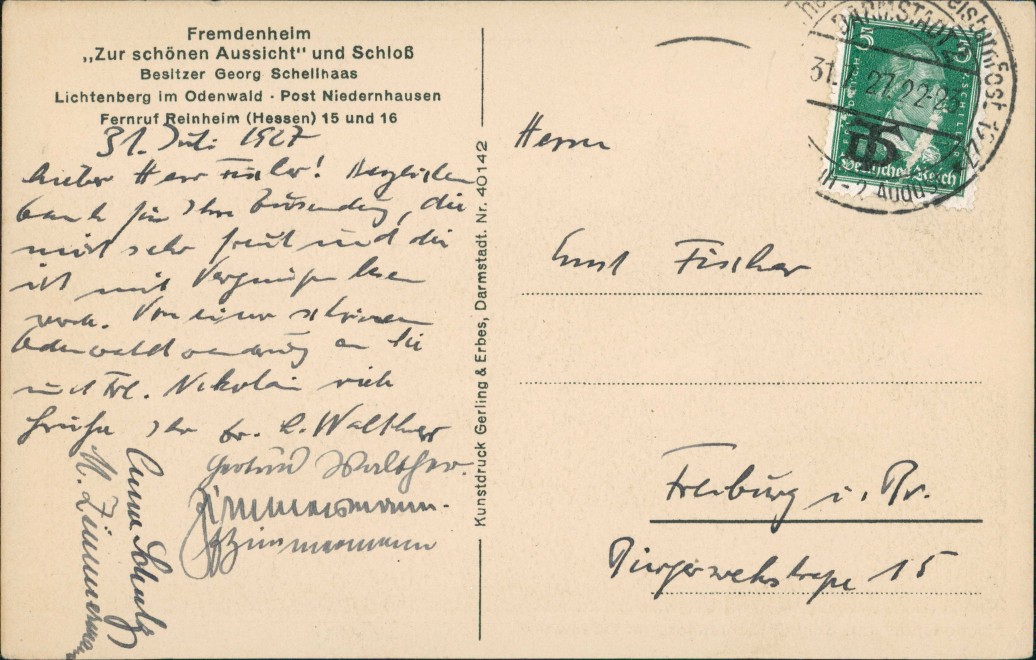 Fremdenheim
„Zur schönen Aussicht" und Schloß
Besitzer Georg Schellhaas
Lichtenberg im Odenwald · Post Niedernhausen
Fernruf Reinheim (Hessen) 15 und 16
31. Juli 1927
Lieber Herr Fischer! Herzlichen
Dank für Ihre Zusendung, die
mich sehr freut und die
ich mit Vergnügen lesen
werde. Von einer schönen
Odenwaldwanderung an Sie
und Frl. Nikolai viele
Grüße Ihr Dr. L. Walther
Gertrud Walther.
Zimmermann.
Zimmermann
Anna Schulz
M. Zimmermann
Kunstdruck Gerling & Erbes, Darmstadt. Nr. 40142
Herrn
Ernst Fischer
Freiburg i. Br.
Bürgerwehrstraße 15
DARMSTADT 2
31.7.27.22-23
5
5
Deutsches Reich